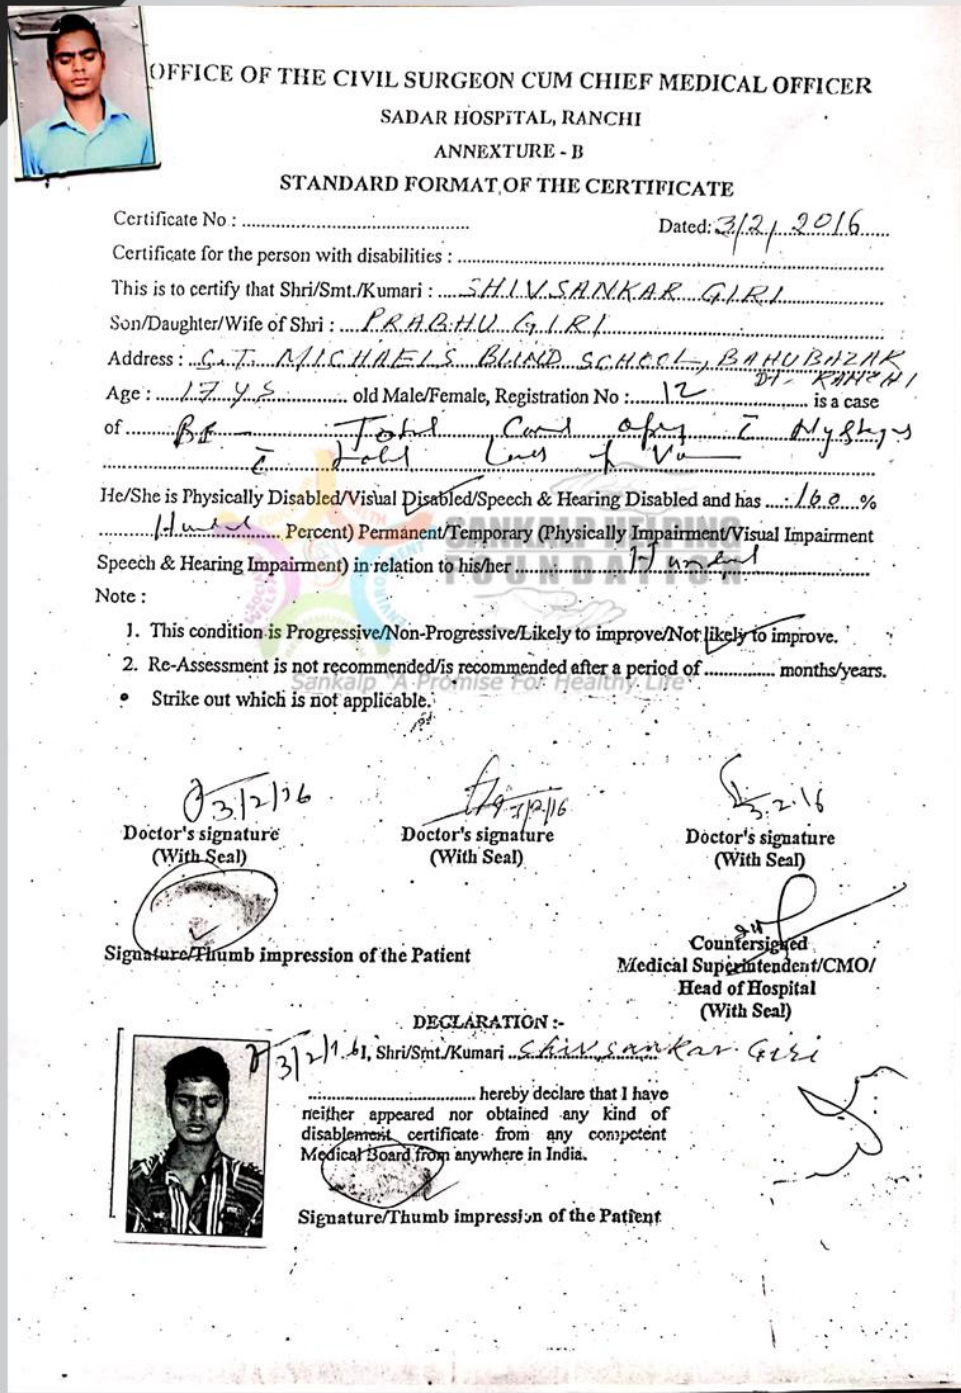 OFFICE OF THE CIVIL SURGEON CUM CHIEF MEDICAL OFFICER
SADAR HOSPITAL, RANCHI
ANNEXTURE - B
STANDARD FORMAT OF THE CERTIFICATE
Certificate No : ........................................... Dated: 3/2/2016
Certificate for the person with disabilities : ...........................................
This is to certify that Shri/Smt./Kumari : SHIVSANKAR GIRI
Son/Daughter/Wife of Shri : PRABHU GIRI
Address : S.T. MICHAELS BLIND SCHOOL, BAHUBAZAR
DT- RANCHI
Age : 17 YS old Male/Female, Registration No : 12 is a case
of BE Total
He/She is Physically Disabled/Visual Disabled/Speech & Hearing Disabled and has 100 %
Percent) Permanent/Temporary (Physically Impairment/Visual Impairment
SANKALP HELPING
FOUNDATION
Speech & Hearing Impairment) in relation to his/her
Note :
1. This condition is Progressive/Non-Progressive/Likely to improve/Not likely to improve.
2. Re-Assessment is not recommended/is recommended after a period of ............. months/years.
Sankalp "A Promise For Healthy Life"
• Strike out which is not applicable.
3/2/16
2/16
3.2.16
Doctor's signature Doctor's signature Doctor's signature
(With Seal) (With Seal) (With Seal)
Signature/Thumb impression of the Patient
Countersigned
Medical Superintendent/CMO/
Head of Hospital
(With Seal)
DECLARATION :-
3/2/16 I, Shri/Smt./Kumari Shiv sankar Giri
.................................. hereby declare that I have
neither appeared nor obtained any kind of
disablement certificate from any competent
Medical Board from anywhere in India.
Signature/Thumb impression of the Patient